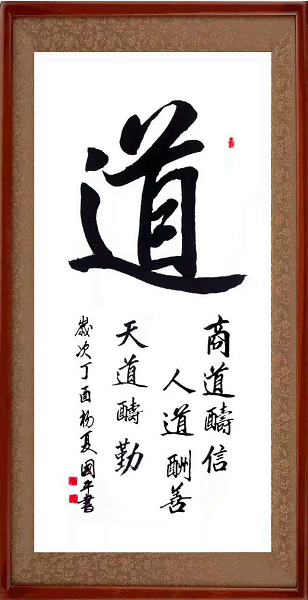 道
商道酬信
人道酬善
天道酬勤
歲次丁酉杨夏國平書